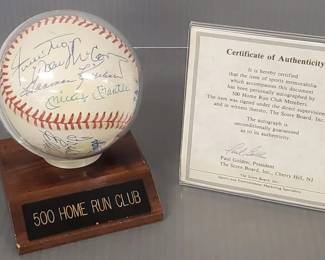 Willie McCovey
Harmon Killebrew
Mickey Mantle
500 HOME RUN CLUB
Certificate of Authenticity
It is hereby certified
that the item of sports memorabilia
which accompanies this document
has been personally autographed by
500 Home Run Club Members.
The item was signed under the direct supervision
and is witness thereof, The Score Board, Inc.
The autograph is
unconditionally guaranteed
as to its authenticity.
Paul Goldin, President
The Score Board, Inc., Cherry Hill, NJ
The Score Board, Inc.
Sports and Entertainment Marketing Specialists